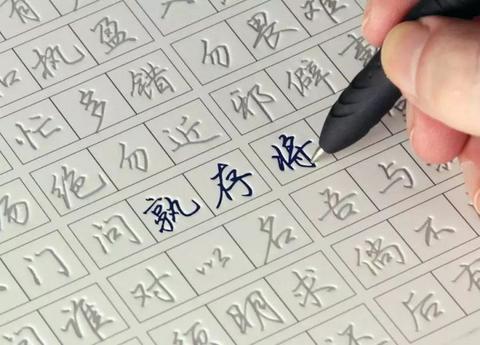 执盈
忙多错勿畏难
场绝勿近邪僻事
门问孰存将
谁对以名吾与
明求倘不
后有